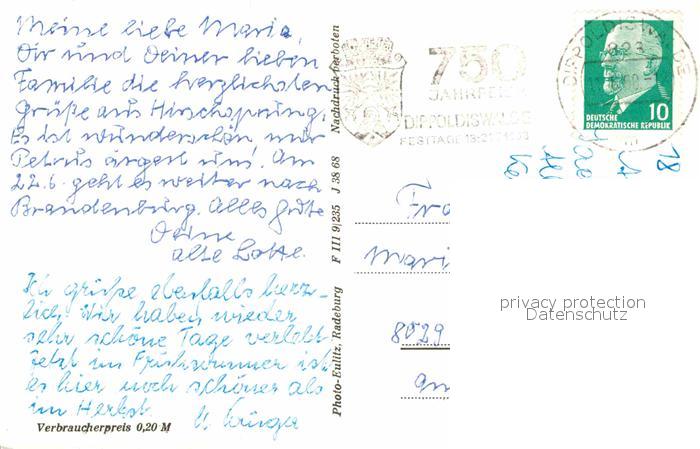 Meine liebe Maria,
Dir und Deiner lieben
Familie die herzlichsten
Grüße aus Hirschsprung,
Es ist wunderschön nur
Petrus ärgert uns! Am
22.6. geht es weiter nach
Brandenburg. Alles Gute
Deine
alte Lotte.
Ich grüße ebenfalls herz-
lich. Wir haben wieder
sehr schöne Tage verlebt
Jetzt im Frühsommer ist
es hier noch schöner als
im Herbst.
Verbraucherpreis 0,20 M
Photo-Eulitz, Radeburg F III 9/235 J 38 68 Nachdruck verboten
750
JAHRFEIER
DIPPOLDISWALDE
FESTTAGE
DIPPOLDISWALDE
10
DEUTSCHE
DEMOKRATISCHE REPUBLIK
18
Fra
Mari
8029
privacy protection
Datenschutz